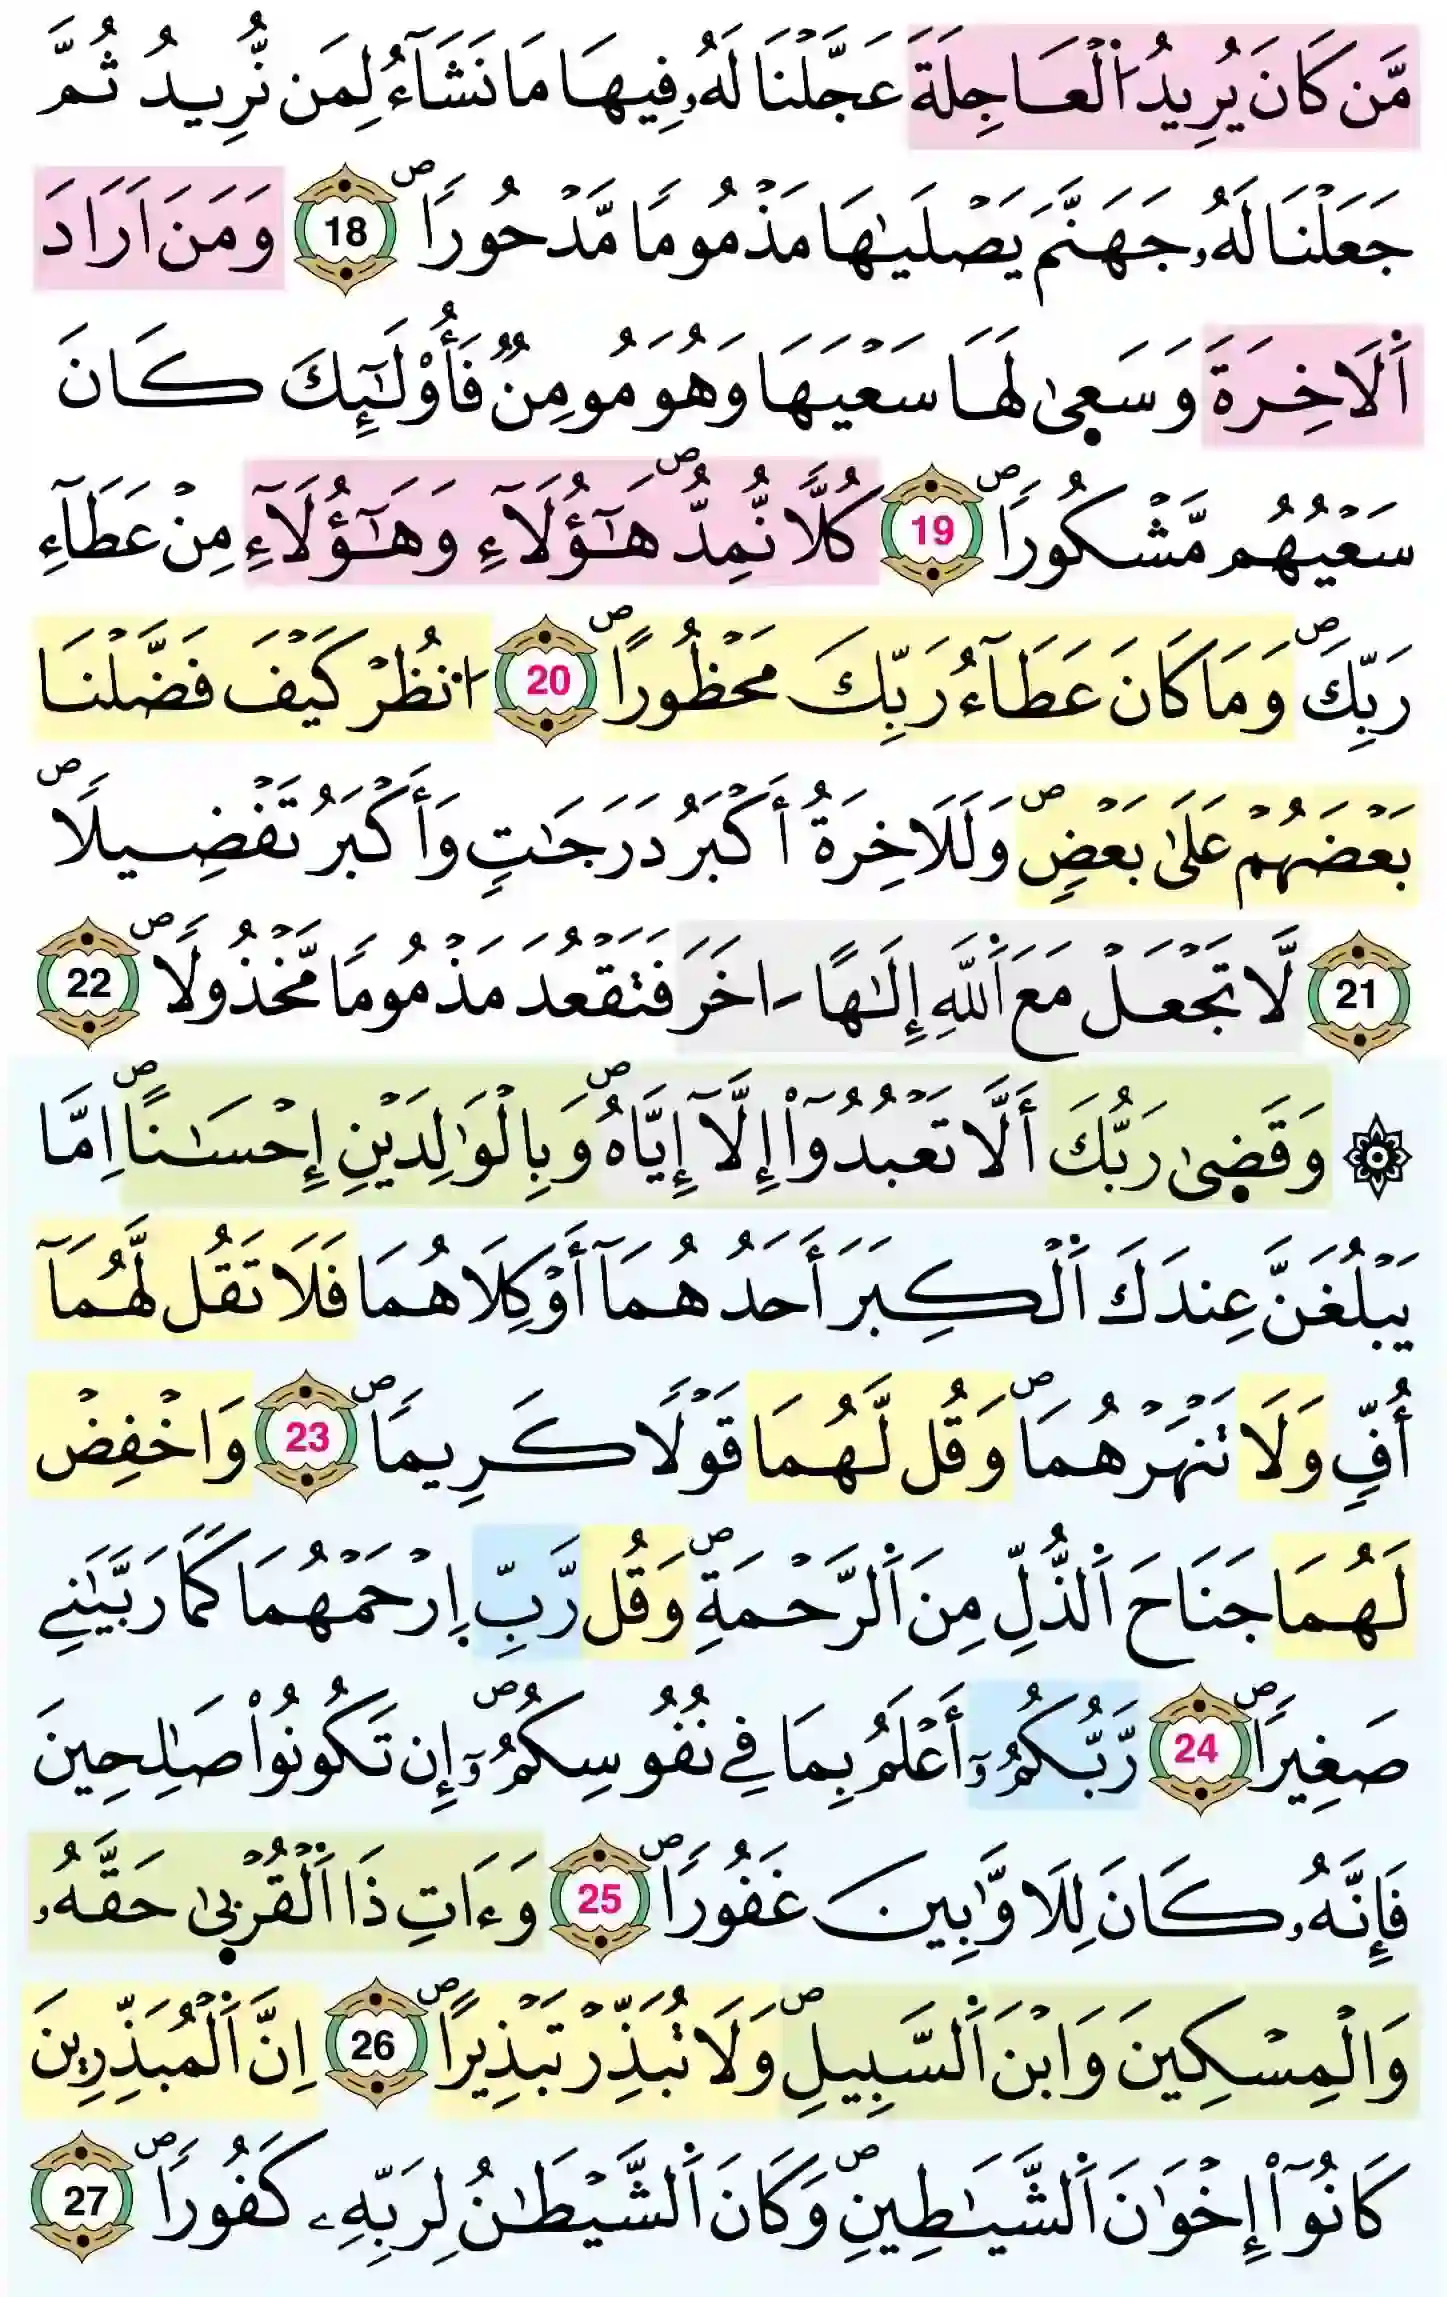 مَّن كَانَ يُرِيدُ اُ۬لْعَاجِلَةَ عَجَّلْنَا لَهُۥ فِيهَا مَا نَشَآءُ لِمَن نُّرِيدُ ثُمَّ
جَعَلْنَا لَهُۥ جَهَنَّمَ يَصْلَيٰهَا مَذْمُومًا مَّدْحُورًاۖ 18 وَمَنَ اَرَادَ
اَ۬لَاخِرَةَ وَسَع۪يٰ لَهَا سَعْيَهَا وَهُوَ مُومِنٌ فَأُوْلَـٰٓئِكَ كَانَ
سَعْيُهُم مَّشْكُورًاۖ 19 كُلّٗا نُّمِدُّۖ هَـٰٓؤُلَآءِ وَهَـٰٓؤُلَآءِ مِنْ عَطَآءِ
رَبِّكَۖ وَمَا كَانَ عَطَآءُ رَبِّكَ مَحْظُورًاۖ 20 اَ۟نظُرْ كَيْفَ فَضَّلْنَا
بَعْضَهُمْ عَلَىٰ بَعْضٍۖ وَلَلَاخِرَةُ أَكْبَرُ دَرَجَـٰتٍ وَأَكْبَرُ تَفْضِيلًاۖ
21 لَّا تَجْعَلْ مَعَ اَ۬للَّهِ إِلَـٰهًا ـاخَرَ فَتَقْعُدَ مَذْمُومًا مَّخْذُولًاۖ 22
۞ وَقَض۪يٰ رَبُّكَ أَلَّا تَعْبُدُوٓاْ إِلَّآ إِيَّاهُۖ وَبِالْوَٰلِدَيْنِ إِحْسَـٰنًاۖ اِمَّا
يَبْلُغَنَّ عِندَكَ اَ۬لْكِبَرَ أَحَدُهُمَآ أَوْ كِلَاهُمَا فَلَا تَقُل لَّهُمَآ
أُفٍّ وَلَا تَنْهَرْهُمَاۖ وَقُل لَّهُمَا قَوْلًا كَرِيمًاۖ 23 وَاخْفِضْ
لَهُمَا جَنَاحَ اَ۬لذُّلِّ مِنَ اَ۬لرَّحْمَةِۖ وَقُل رَّبِّ اِ۪رْحَمْهُمَا كَمَا رَبَّيَـٰنِے
صَغِيرًاۖ 24 رَّبُّكُمُۥٓ أَعْلَمُ بِمَا فِے نُفُوسِكُمُۥٓۖ إِن تَكُونُواْ صَـٰلِحِينَ
فَإِنَّهُۥ كَانَ لِلَاوَّٰبِينَ غَفُورًاۖ 25 وَءَاتِ ذَا اَ۬لْقُرْب۪يٰ حَقَّهُۥ
وَالْمِسْكِينَ وَابْنَ اَ۬لسَّبِيلِۖ وَلَا تُبَذِّرْ تَبْذِيرًاۖ 26 اِنَّ اَ۬لْمُبَذِّرِينَ
كَانُوٓاْ إِخْوَٰنَ اَ۬لشَّيَـٰطِينِۖ وَكَانَ اَ۬لشَّيْطَـٰنُ لِرَبِّهِۦ كَفُورًاۖ 27